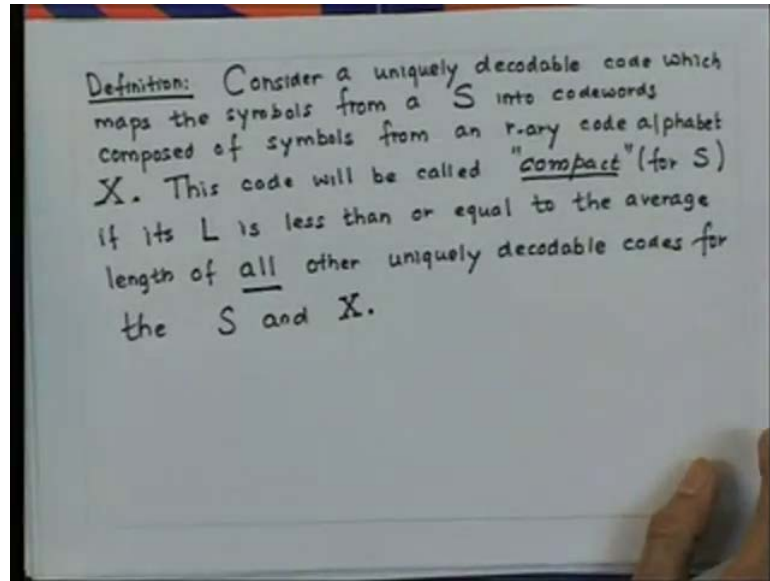 Definition: Consider a uniquely decodable code which
maps the symbols from a S into codewords
composed of symbols from an r-ary code alphabet
X. This code will be called "compact" (for S)
if its L is less than or equal to the average
length of all other uniquely decodable codes for
the S and X.